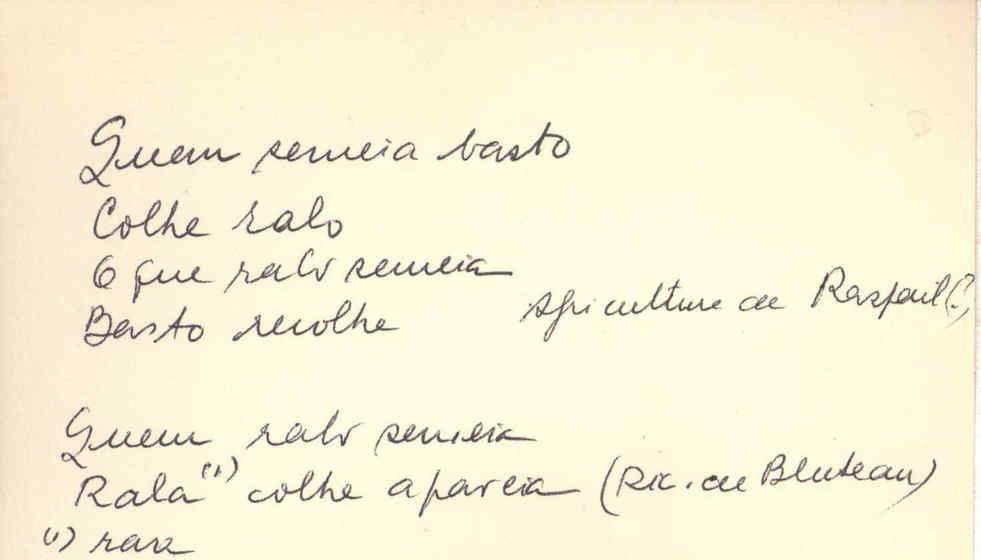 Quem semeia basto
Colhe ralo
O que ralo semeia
Basto recolhe Agricultura de Raspail (?)
Quem ralo semeia
Rala (1) colhe a paveia (Dic. de Bluteau)
(1) rara